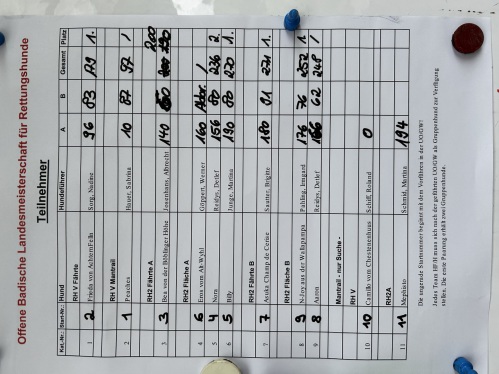 Offene Badische Landesmeisterschaft für Rettungshunde
Teilnehmer
Kat.-Nr.: Start-Nr.: Hund Hundeführer A B Gesamt Platz
RH V Fährte
1 2 Frieda von Sorg, Nadine 96 83 1.
RH V Mantrail
2 1 Peaches Hauer, Sabrina 10 87 97 /
RH2 Fährte A
3 3 Bea von der Böblinger Höhe Josenhans, Albrecht 140
RH2 Fläche A
4 6 Eros vom Ab Wahl Göppert, Werner 160 Abbr. /
5 4 Nora Reidys, Detlef 156 80 236 2.
6 5 Billy Junge, Martina 190 80 270 1.
RH2 Fährte B
7 7 Asuki Champ de Cerise Sautter, Brigitte 180 91 271 1.
RH2 Fläche B
8 9 N-Joy aus der Wallapampa Pahling, Irmgard 176 76 252 1.
9 8 Aaron Reidys, Detlef 186 62 248 /
Mantrail - nur Suche -
RH V
10 10 Camillo vom Chestenenhuus Schiff, Roland 0
RH2A
11 11 Mephisto Schmid, Martina 194
Die steigende Startnummer beginnt mit dem Vorführen in der UO/GW!
Jedes Team RFH muss sich nach der geführten UO/GW als Gruppenhund zur Verfügung
stellen. Die erste Paarung erhält zwei Gruppenhunde.